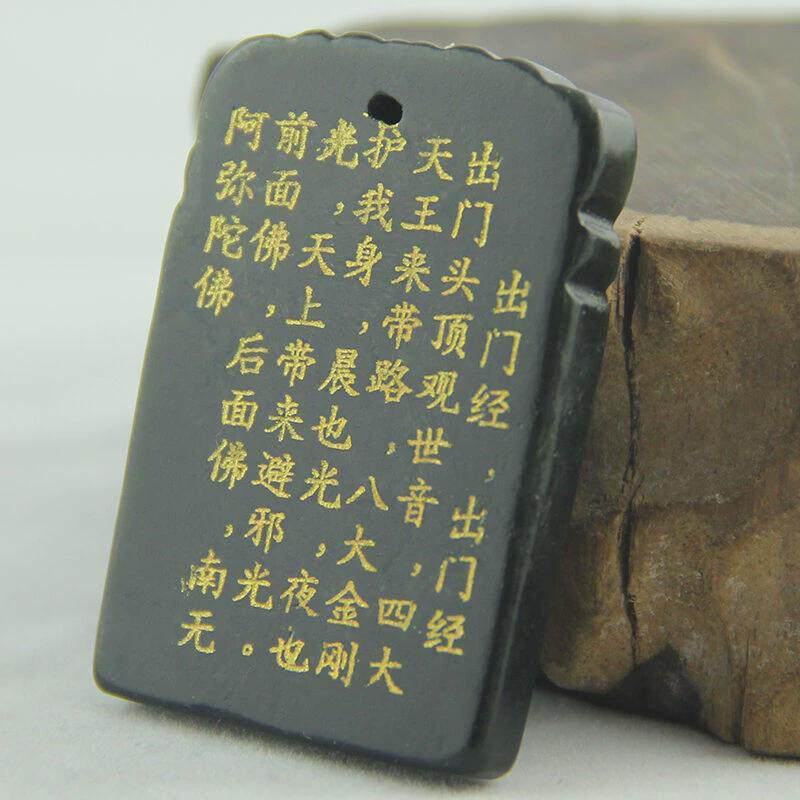 出门经，出门经
出门头顶观世音，四大
天王来带路，八大金刚
护我身，晨也光，夜也
光，天上带来避邪光。
前面佛，后面佛，南无
阿弥陀佛